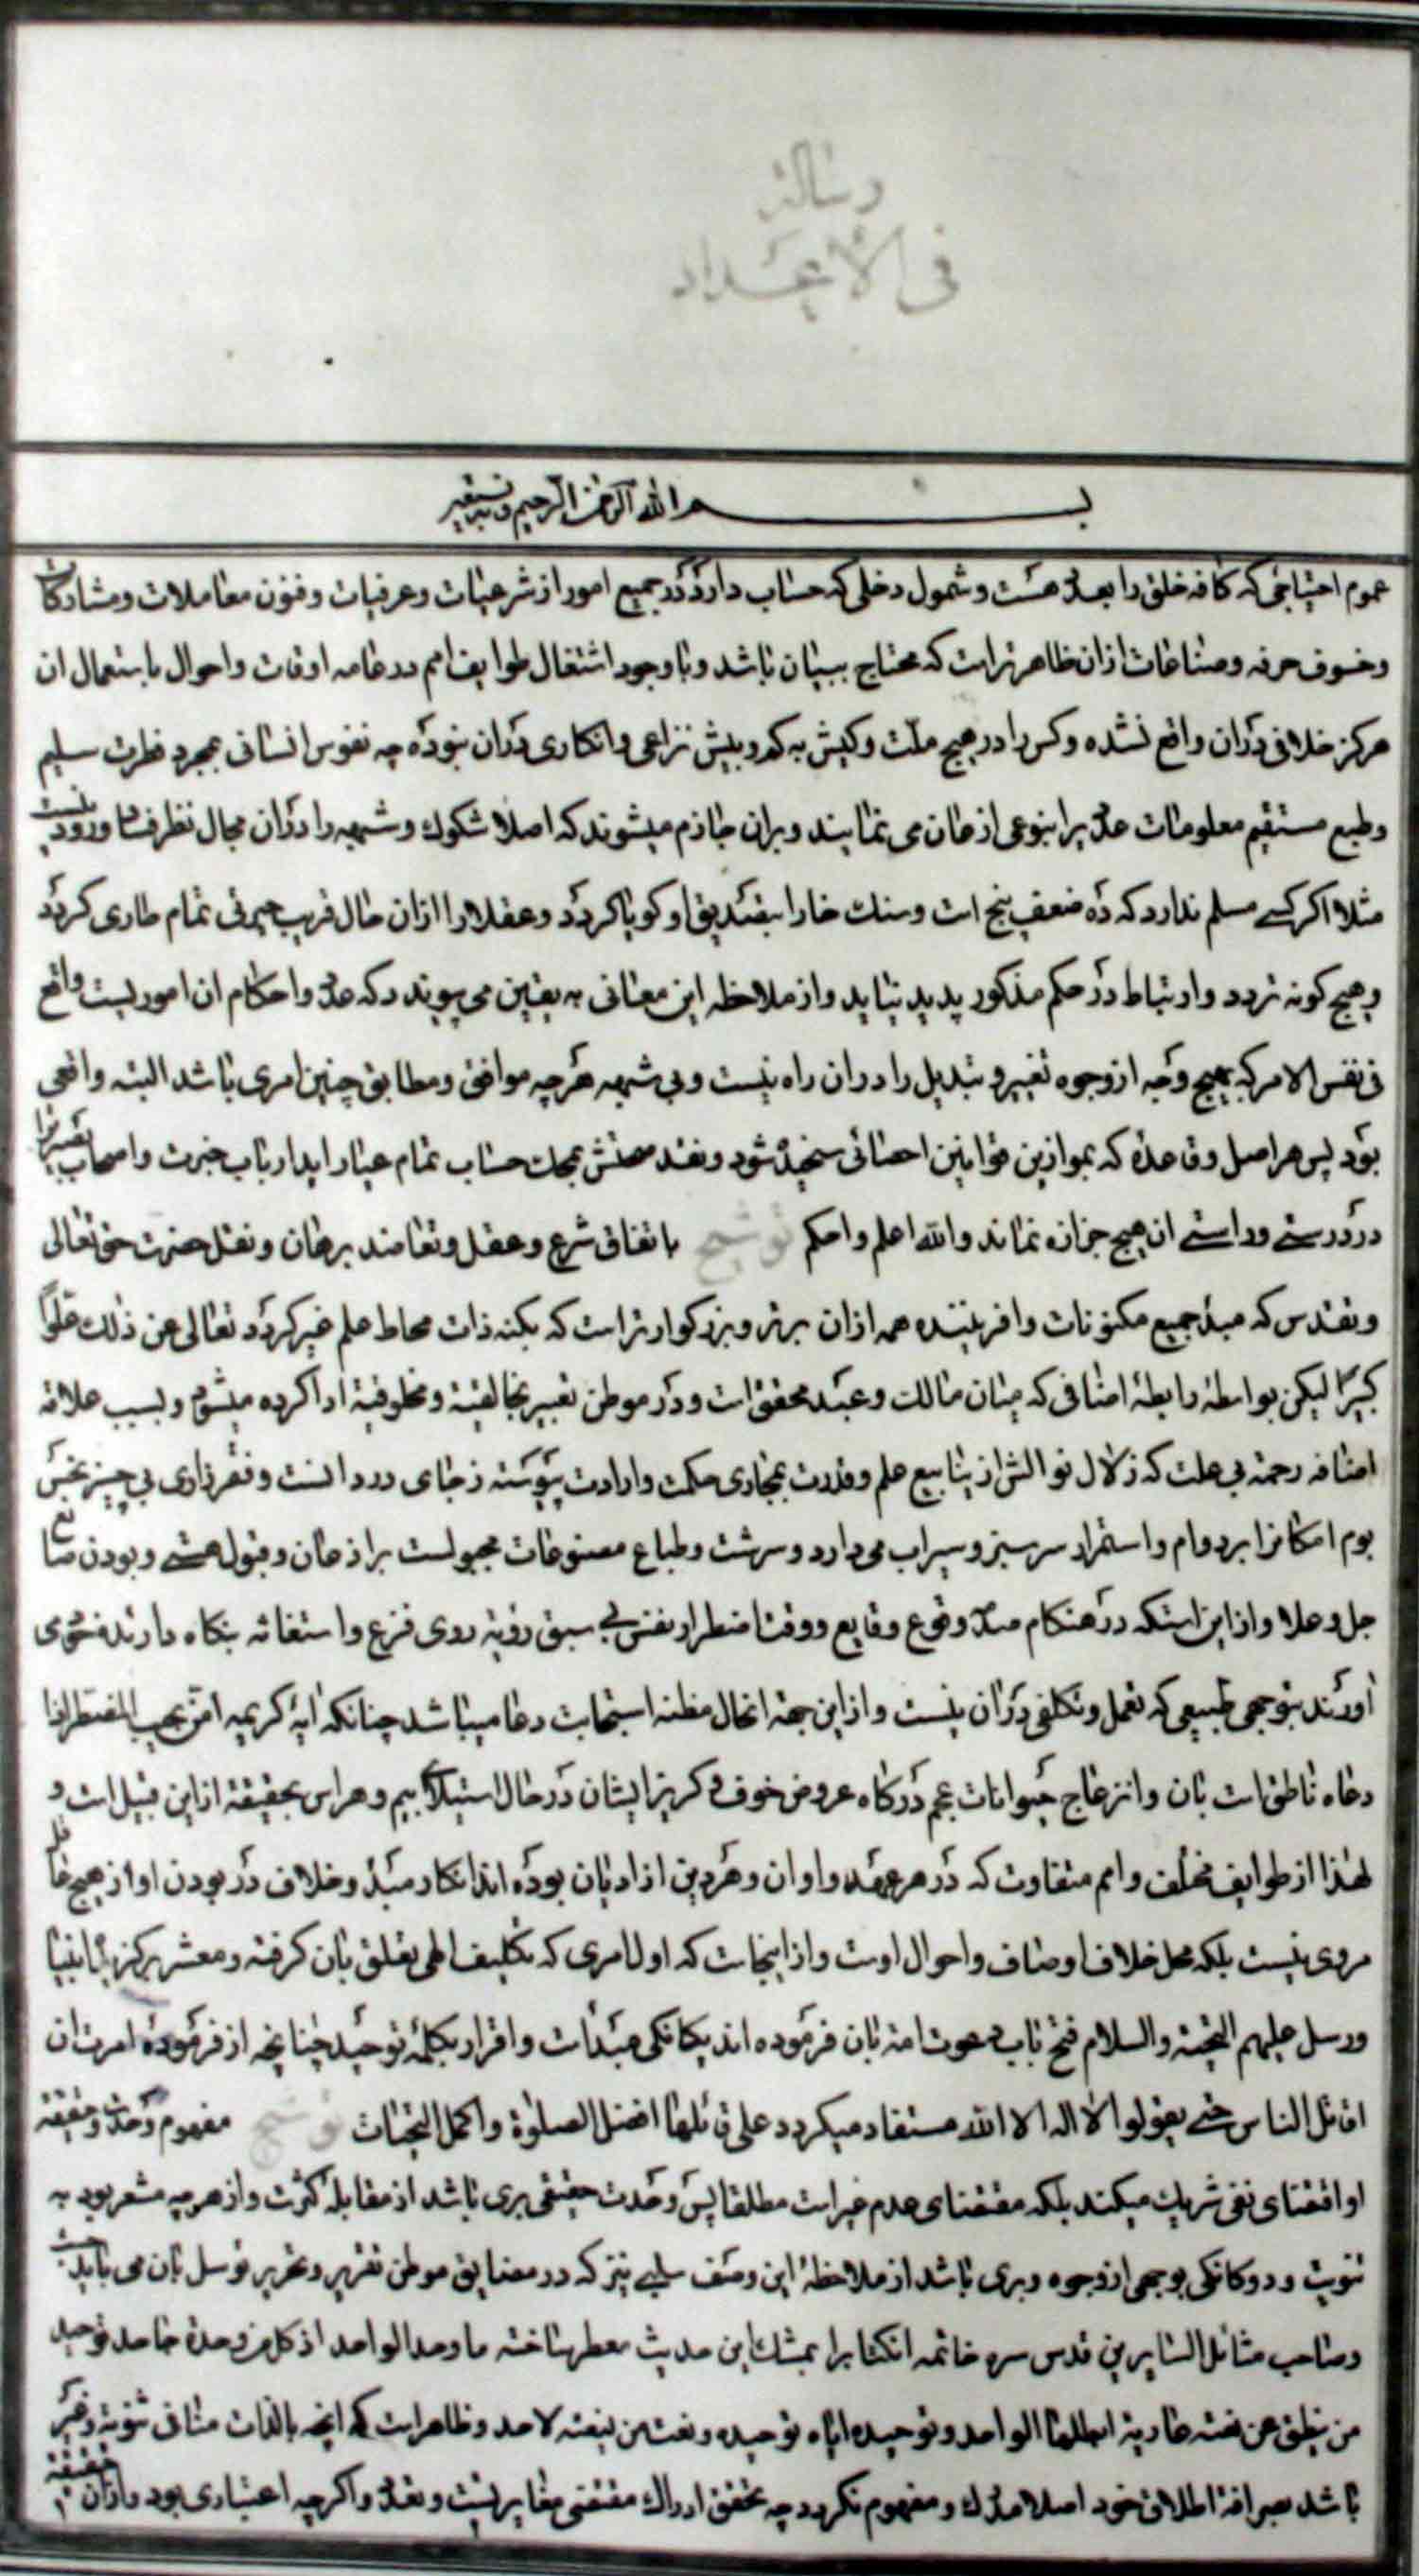 رسالة
فی الاعداد
بسم الله الرحمن الرحیم وبه نستعین
عموم احتیاجی که کافه خلق را بعدد هست و شمول دخلی که حساب دارد در جمیع امور از شرعیات و عرفیات و فنون معاملات و مشارکات
و حرفه و صناعات ازان ظاهرترست که محتاج ببیان باشد و با وجود اشتغال طوایف امم در عامه اوقات و احوال باستعمال ان
هرکز خلافی دران واقع نشده و کس را در هیچ ملت و کیش به کم و بیش نزاعی و انکاری دران نبوده چه نفوس انسانی بمجرد فطرت سلیم
و طبع مستقیم معلومات عددیرا بنوعی اذعان می نمایند و بران جازم میشوند که اصلا شکوک و شبهه را دران مجال نظر فساد و ورود نیست
مثلا اکر کسی مسلم ندارد که ده ضعف پنج است و سنک خارا بتصدیق او کویا کردد و عقلا را ازان حال غریب حیرتی تمام طاری کردد
و هیچ کونه تردد و ارتیاب در حکم مذکور پدید نیاید و از ملاحظه این معانی به یقین می پیوندد که عدد و احکام ان اموریست واقع
فی نفس الامر که بهیچ وجه از وجوه تغییر و تبدیل را دران راه نیست و بی شبهه هرچه موافق و مطابق چنین امری باشد البته واقعی
بود پس هر اصل و قاعده که بموازین قوانین احصائی سنجیده شود و نقد صحتش بمحک حساب تمام عیار اید ارباب خبرت و اصحاب بصیرترا
در درستی و راستی ان هیچ نماند والله اعلم و احکم توشیح باتفاق شرع و عقل و تعاضد برهان و نقل حضرت حق تعالی
و تقدس که مبدء جمیع مکنونات و افریننده همه ازان برتر و بزرکوارترست که بکنه ذات محاط علم غیر کردد تعالی عن ذلک علوا
کبیرا لیکن بواسطه رابطه اضافی که میان مالک و عبد محقق است و در موطن تعبیر بخالقیه و مخلوقیه ادا کرده میشود و بسبب علاقه
افاضه رحمة بی علت که زلال نوالش از ینابیع علم و قدرت بمجاری حکمت و ارادت پیوسته
بوم امکانرا بر دوام و استمرار سرسبز و سیراب می دارد و سرشت و طباع مصنوعات مجبولست بر اذعان و قبول هستی و بودن صانع
جل و علا و از این است که در هنکام وقوع وقایع و وقت اضطرار نفس بی سبق رؤیه روی فزع و استغاثه بنکاه دارنده می
اورند بتوجهی طبیعی که تعمل و تکلفی دران نیست و از این جهة مظنه استجابت دعا میباشد چنانکه ایه کریمه امن یجیب المضطر اذا
دعاه ناطق است بان و انزعاج حیوانات عجم در کاه عروض خوف و کریز ایشان در حال استیلاء بیم و هراس بحقیقة از این قبیل است و
لهذا از طوایف مختلف و امم متفاوت که در هر عهد و اوان و هر دین از ادیان بوده اند انکار مبدء و خلاف در بودن او از هیچ عاقل
مروی نیست بلکه محل خلاف اوصاف و احوال اوست و از اینجاست که اول امری که تکلیف الهی تعلق بان کرفته و معشر انبیا
و رسل علیهم التحیة والسلام فتح باب دعوت امة بان فرموده اند یکانکی مبدءات و اقرار بکلمه توحید چنانچه از فرموده امرت ان
اقاتل الناس حتی یقولوا لا اله الا الله مستفاد میکردد علی قائلها افضل الصلوة و اکمل التحیات توشیح مفهوم وحدت و حقیقة
او اقتضای نفی شریک میکند بلکه مقتضای عدم غیر است مطلقا پس وحدت حقیقی بری باشد از مقابله کثرت و از هر چه مشعر بود به
ثنویت و دوکانکی بوجهی از وجوه و بری باشد از ملاحظه این وصف سلبی نیز که در مضایق موطن تقریر و تحریر توسل بان می باید جست
و صاحب منازل السایرین قدس سره خاتمه ان کتابرا بمسک این حدیث معطر ساخته ما وحد الواحد اذ کل من وحده جاحد توحید
من ینطق عن نعته عاریة ابطلها الواحد و توحیده ایاه توحیده و نعت من ینعته لاحد و ظاهر است که انچه بالذات منافی ثنویة و غیر
باشد بصرافة اطلاق خود اصلا مدرک و مفهوم نکردد چه تحقق ادراک مقتضی مغایرتست و تعدد و اکرچه اعتباری بود و ازان حقیقة